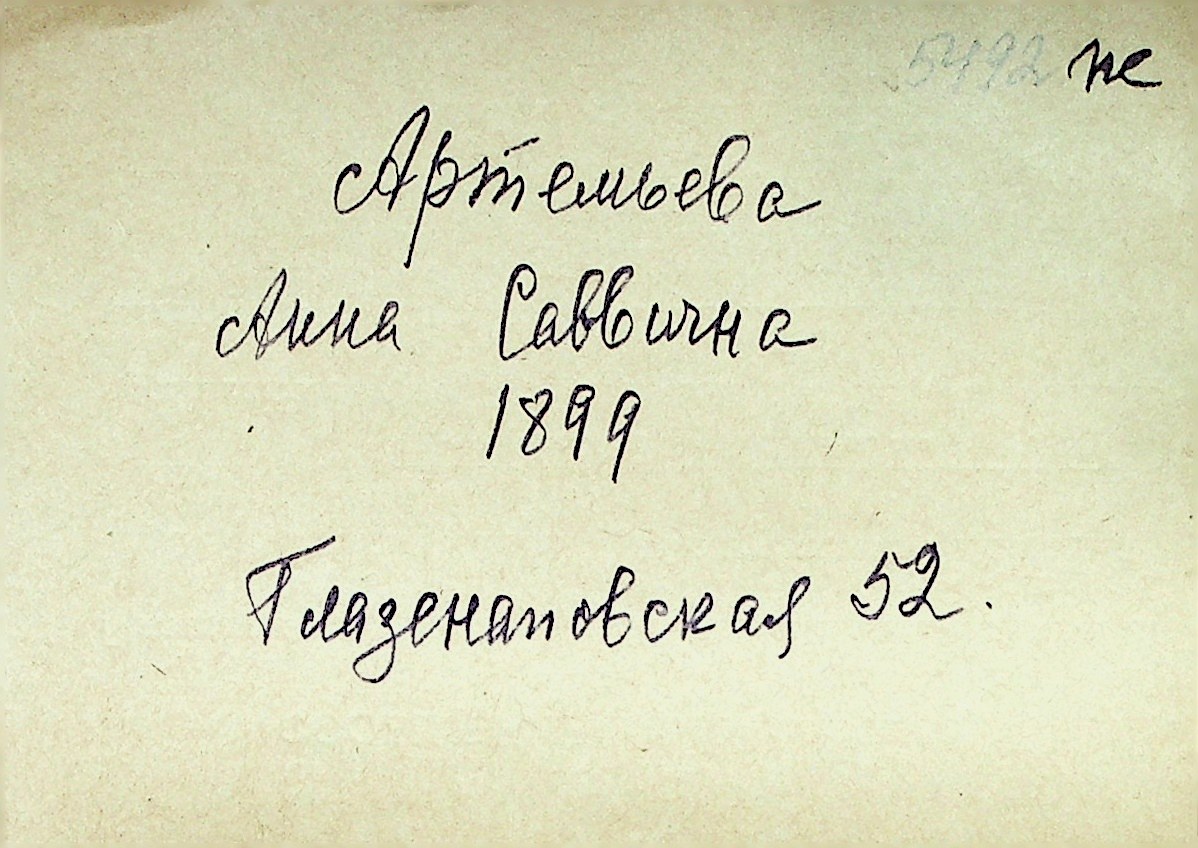 5492 не
Артемьева
Анна Саввична
1899
Глазенаповская 52.